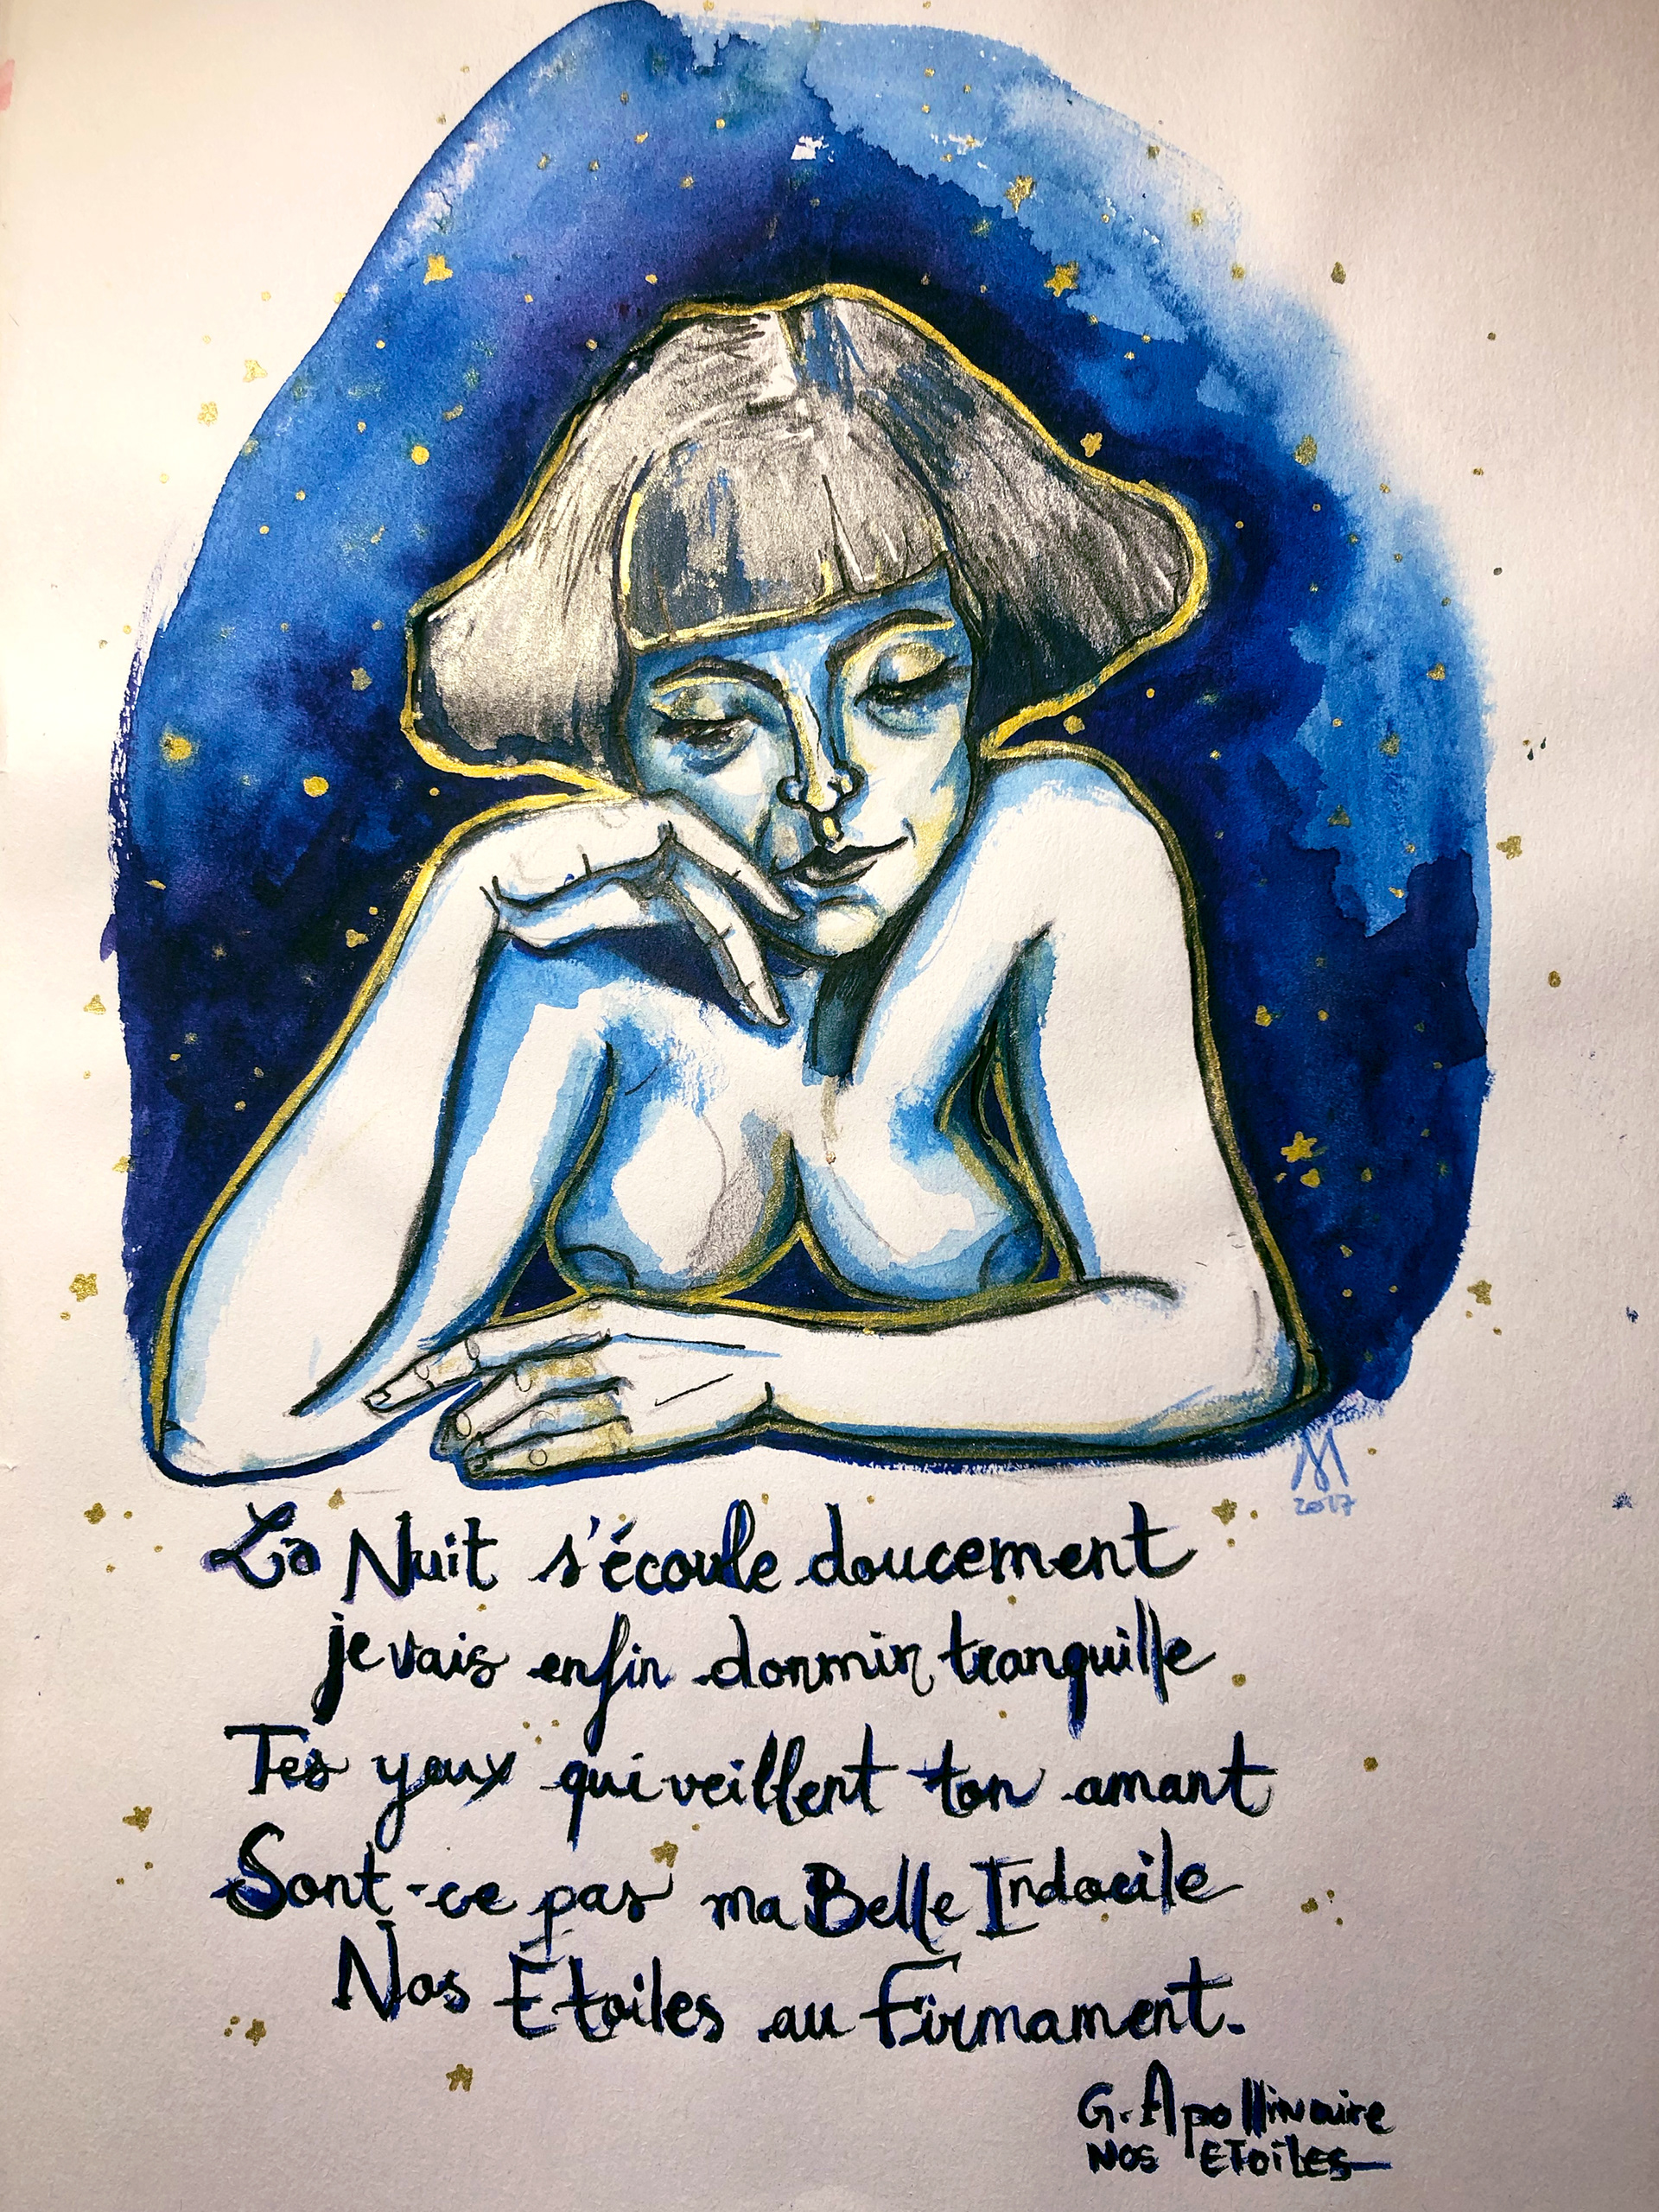 M
2017
La Nuit s'écoule doucement
je vais enfin dormir tranquille
Tes yeux qui veillent ton amant
Sont-ce pas ma Belle Indocile
Nos Etoiles au Firmament.
G. Apollinaire
NOS ETOILES